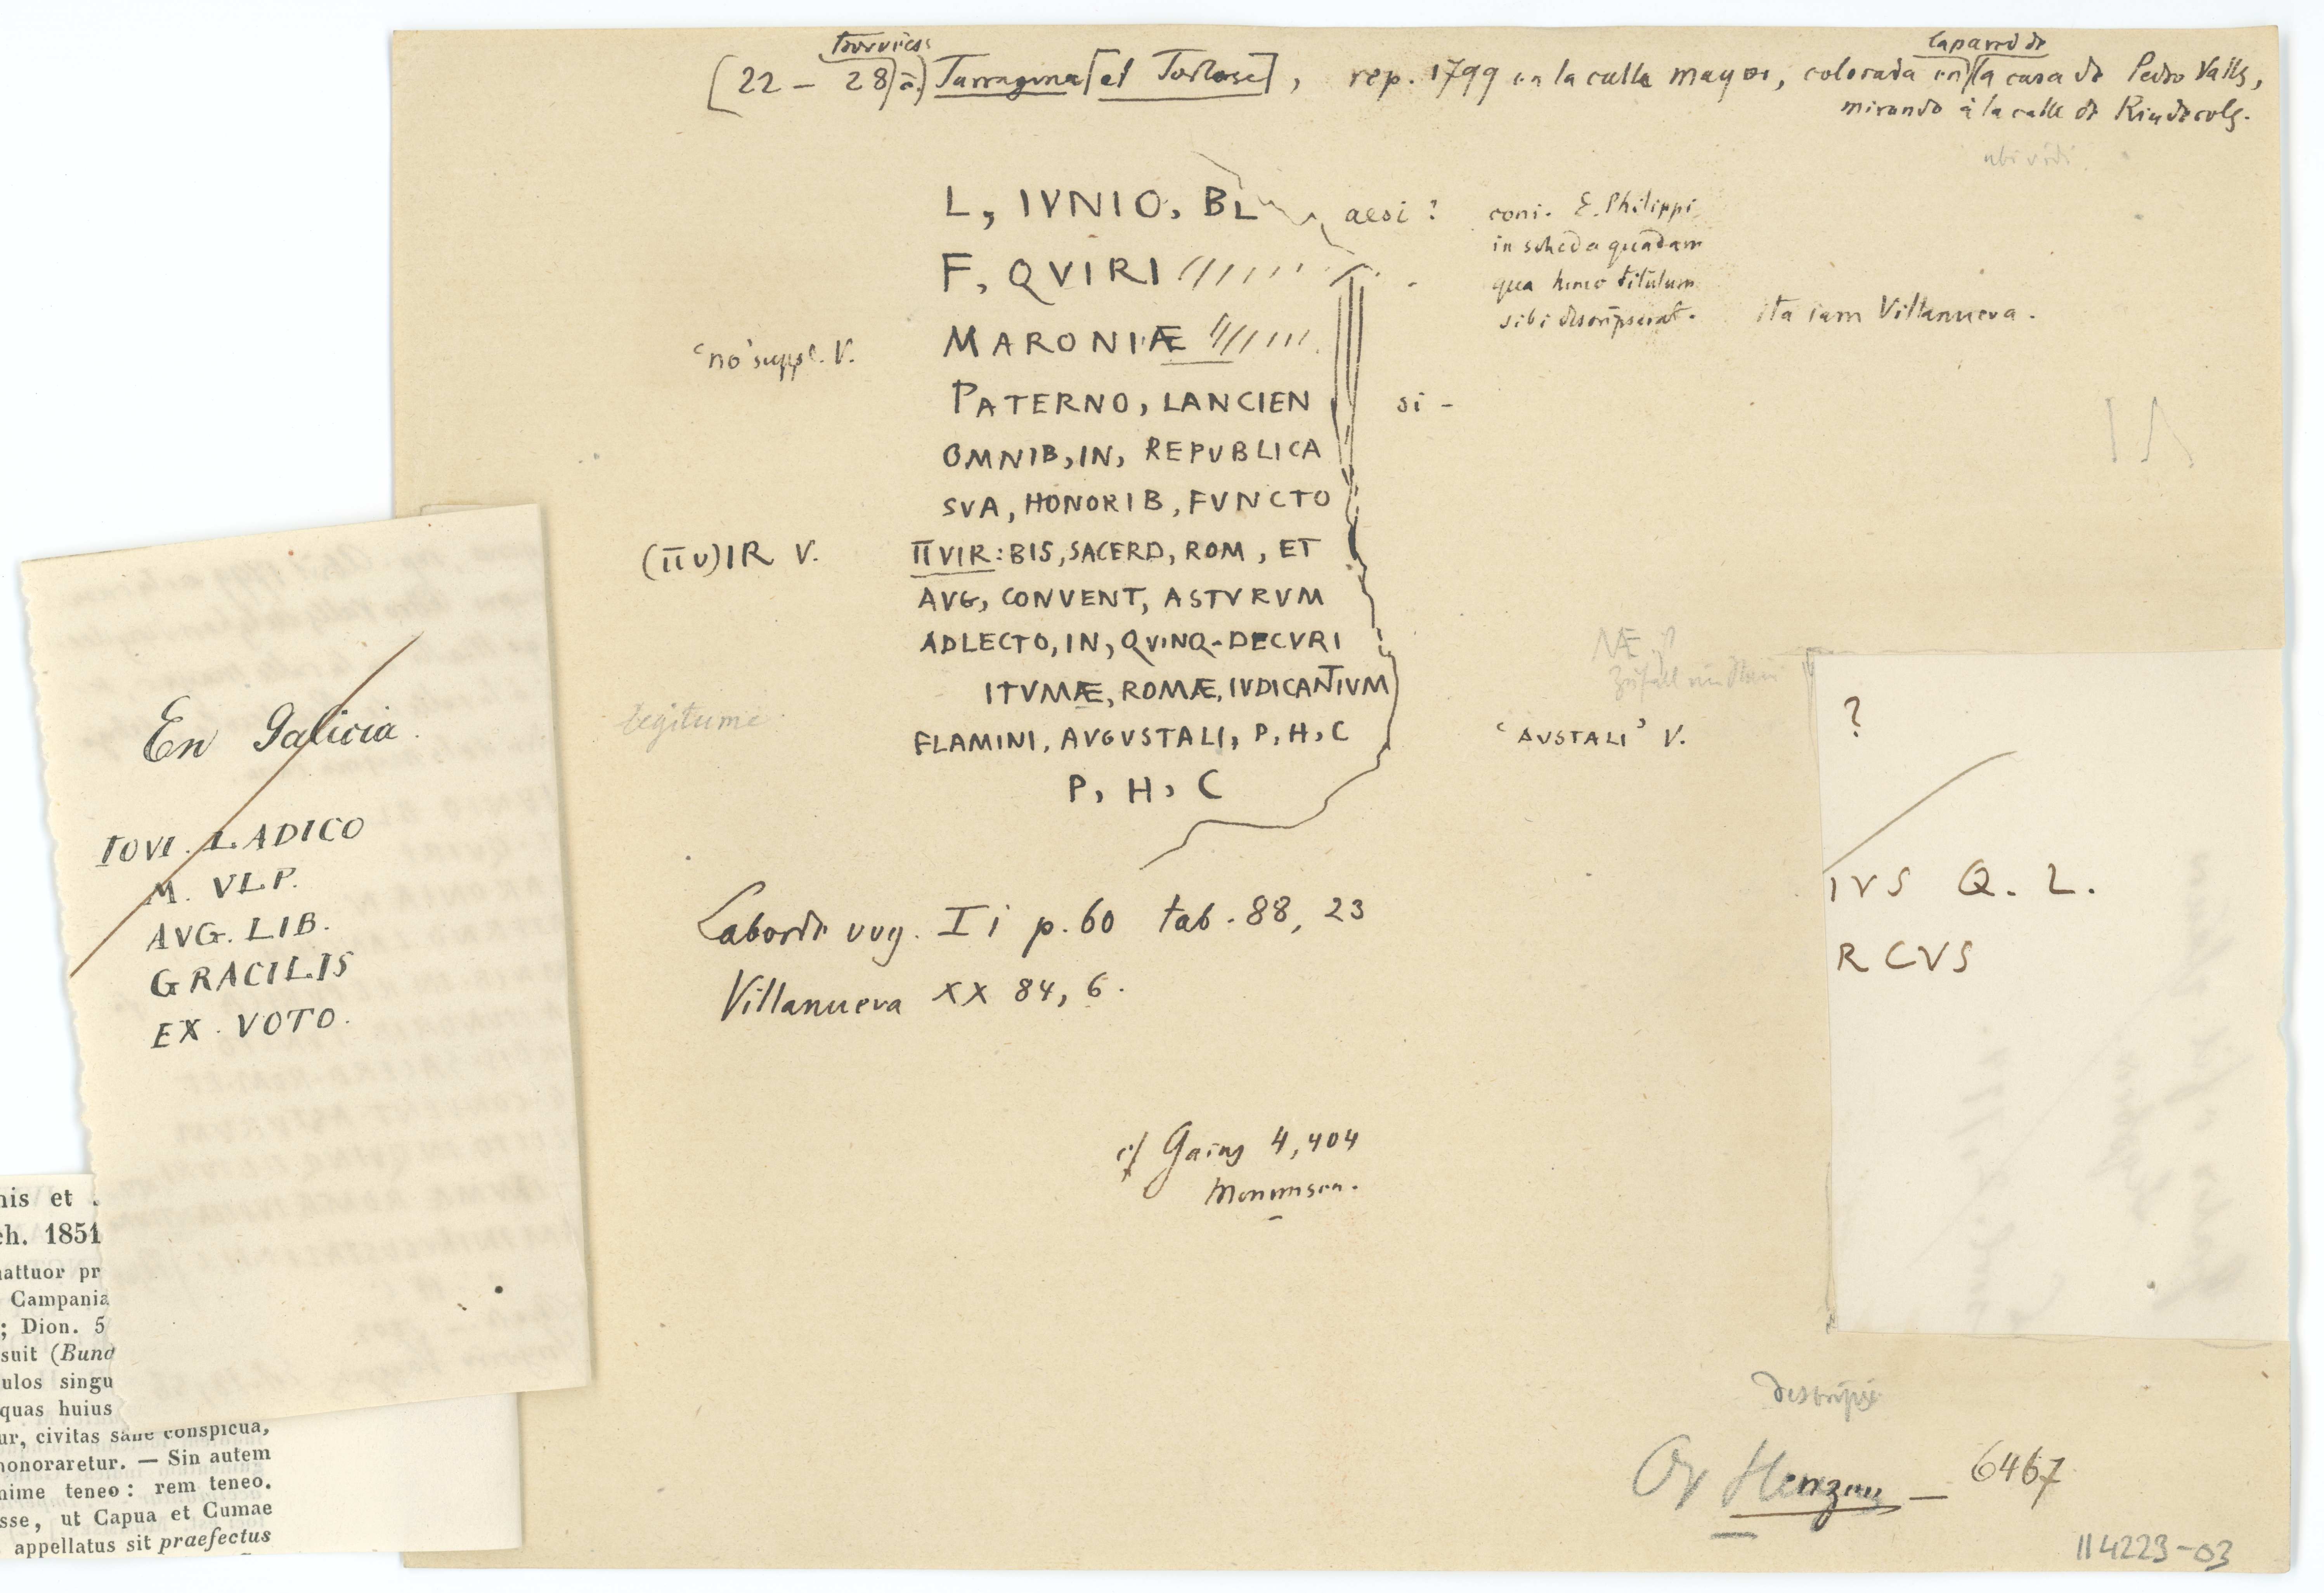 [22 – 28) ā.) Tarragona [et Tortose], rep. 1799 en la calle mayor, colocada en la pared de la casa de Pedro Valls,
mirando à la calle de Riudecols.
ubi vidi
L, IVNIO, BL aesi ? coni. E. Philippi
in scheda quadam
F, QVIRI - qua hunc titulum
sibi descripserat. ita iam Villanueva.
'no' suppl. V. MARONIÆ
PATERNO, LANCIEN si -
OMNIB, IN, REPVBLICA
SVA, HONORIB, FVNCTO
(IIv)IR V. IIVIR: BIS, SACERD, ROM, ET
AVG, CONVENT, ASTVRVM
ADLECTO, IN, QVINQ-DECVRI
ITVMÆ, ROMÆ, IVDICANTIVM
legitume
FLAMINI, AVGVSTALI, P, H, C 'AVSTALI' V.
P, H, C
Laborde voy. I i p. 60 tab. 88, 23
Villanueva XX 84, 6.
cf Gaius 4, 404
Mommsen.
descripsi
Or Henzen — 6467
II 4223-03
En Galicia.
IOVI. LADICO
M. VLP.
AVG. LIB.
GRACILIS
EX. VOTO.
?
IVS Q. L.
RCVS
nis et
ch. 1851
attuor pr
Campania
; Dion. 5
suit (Bund
ulos singu
quas huius
ur, civitas sane conspicua,
honoraretur. — Sin autem
nime teneo: rem teneo.
sse, ut Capua et Cumae
appellatus sit praefectus